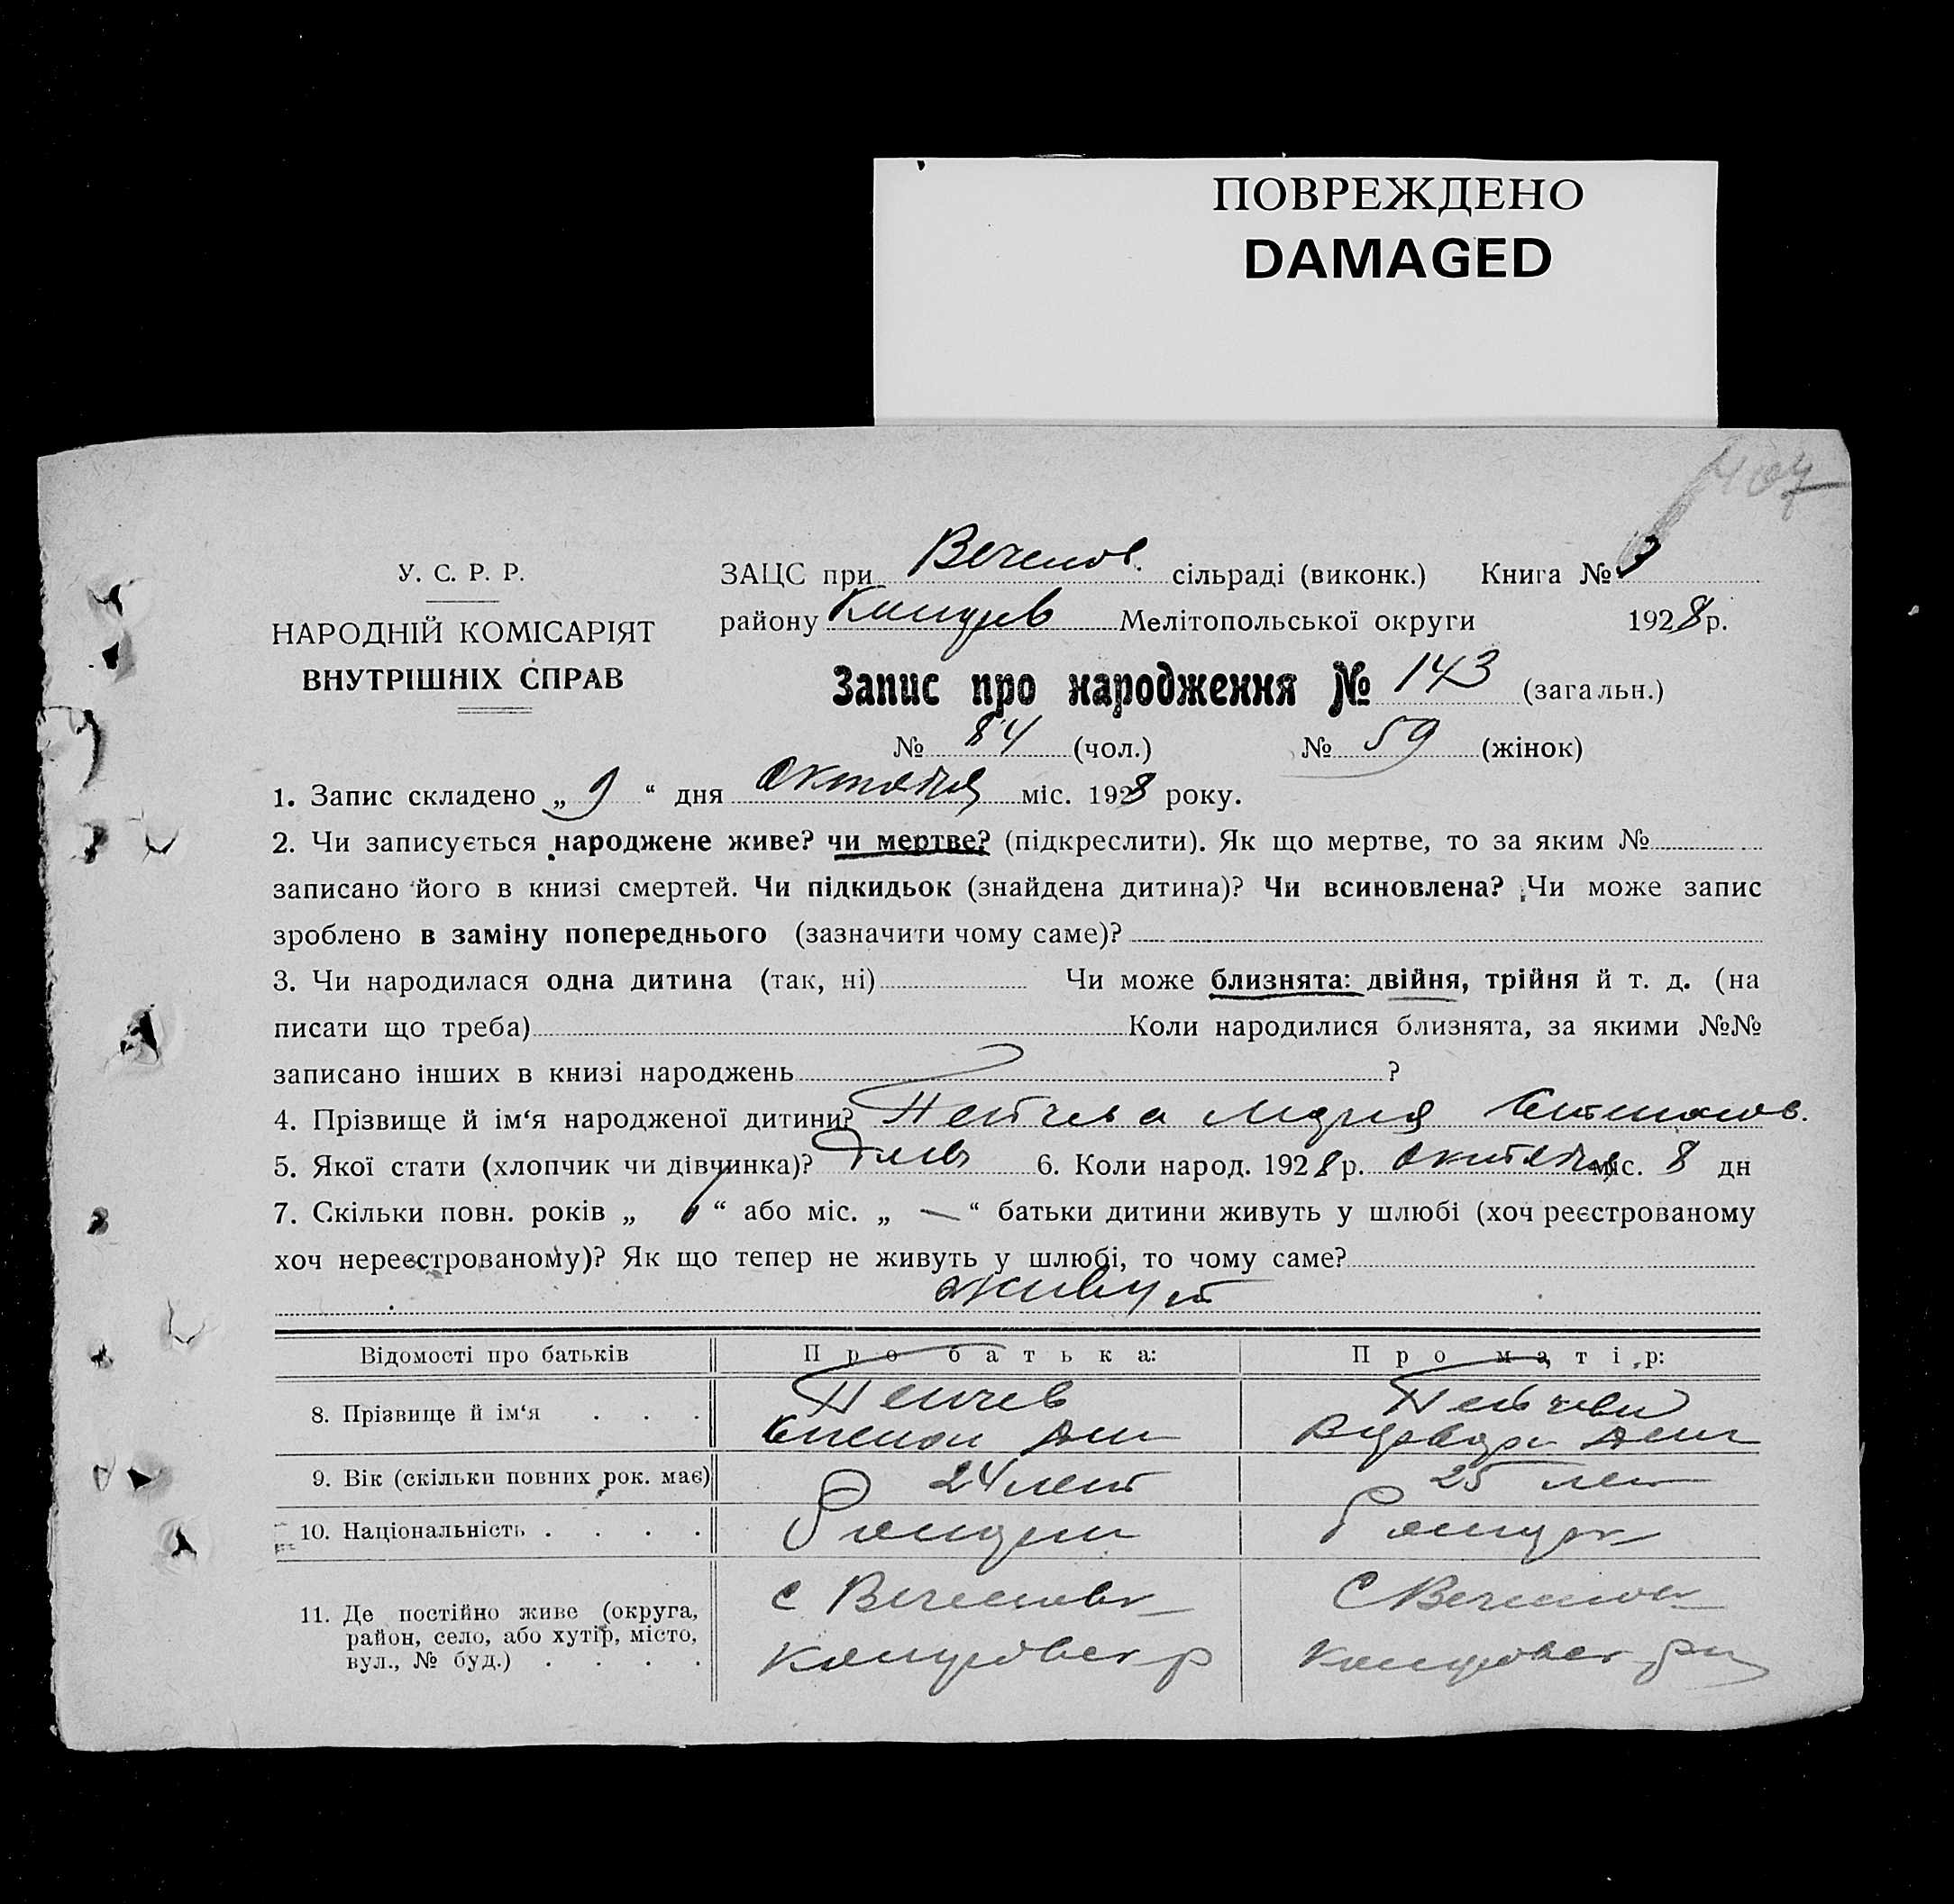 ПОВРЕЖДЕНО
DAMAGED
У. С. Р. Р.
НАРОДНІЙ КОМІСАРІЯТ
ВНУТРІШНІХ СПРАВ
ЗАЦС при сільраді (виконк.) Книга № 3
району Мелітопольської округи 1928 р.
Запис про народження № 143 (загальн.)
№ 84 (чол.) № 59 (жінок)
1. Запис складено „ 9 “ дня октября міс. 1928 року.
2. Чи записується народжене живе? чи мертве? (підкреслити). Як що мертве, то за яким №
записано його в книзі смертей. Чи підкидьок (знайдена дитина)? Чи всиновлена? Чи може запис
зроблено в заміну попереднього (зазначити чому саме)?
3. Чи народилася одна дитина (так, ні) Чи може близнята: двійня, трійня й т. д. (на
писати що треба) Коли народилися близнята, за якими №№
записано інших в книзі народжень ?
4. Прізвище й ім‘я народженої дитини? Мария
5. Якої стати (хлопчик чи дівчинка)? 6. Коли народ. 1928 р. октября міс. 8 дн
7. Скільки повн. років „ “ або міс. „ — “ батьки дитини живуть у шлюбі (хоч реєстрованому
хоч нереєстрованому)? Як що тепер не живуть у шлюбі, то чому саме?
живут
Відомості про батьків Про батька: Про матір:
8. Прізвище й ім‘я . . .
9. Вік (скільки повних рок. має) 24 лет 25 лет
10. Національність . . . .
11. Де постійно живе (округа,
район, село, або хутір, місто,
вул., № буд.) . . . .